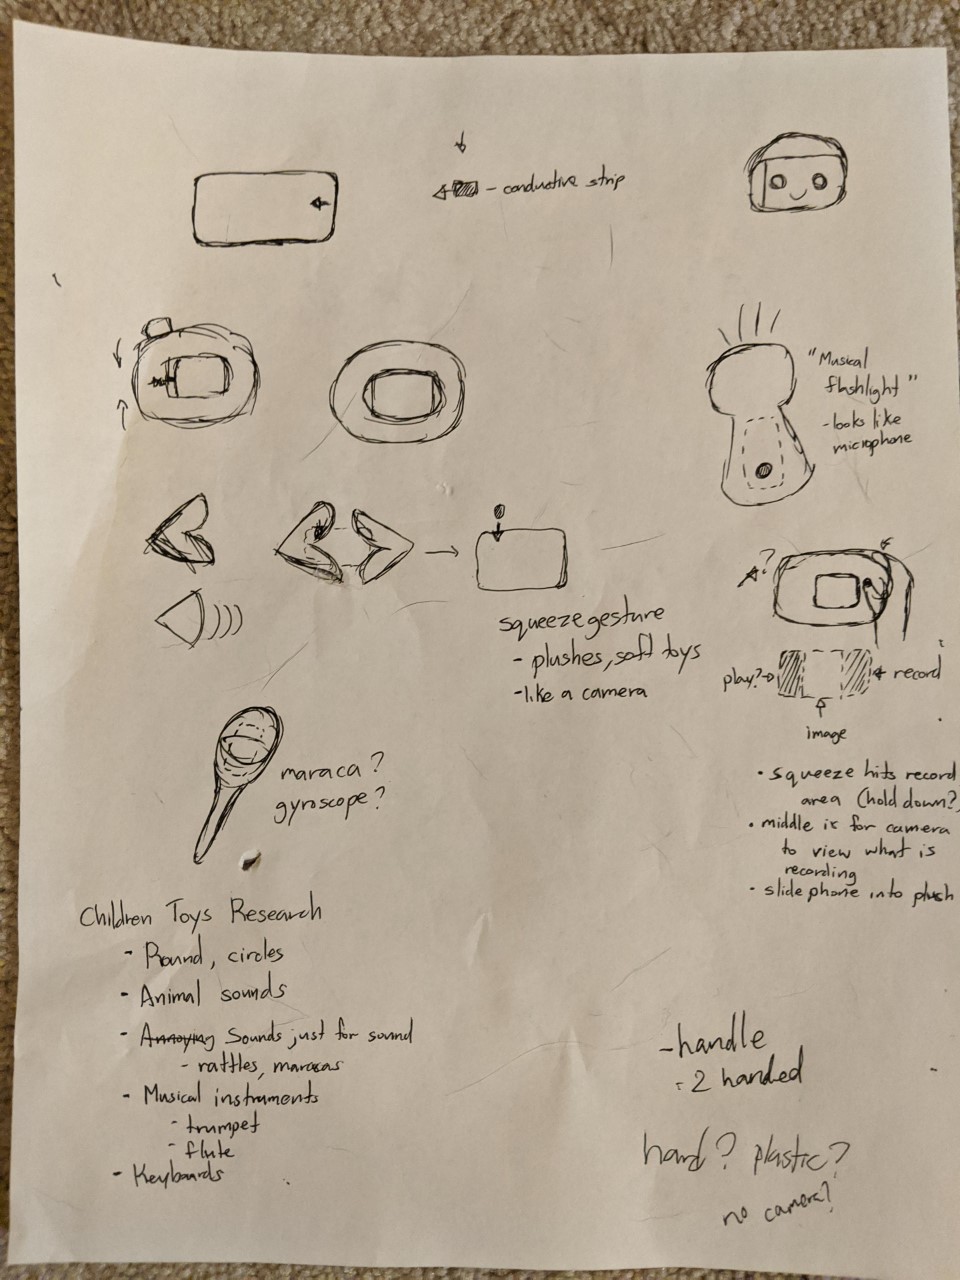 - conductive strip
"Musical
flashlight"
- looks like
microphone
squeeze gesture
- plushes, soft toys
- like a camera
?
play?
record
image
• squeeze hits record
area (hold down?)
• middle is for camera
to view what is
recording
• slide phone into plush
maraca?
gyroscope?
Children Toys Research
- Round, circles
- Animal sounds
- Annoying Sounds just for sound
- rattles, maracas
- Musical instruments
- trumpet
- flute
- Keyboards
- handle
- 2 handed
hard? plastic?
no camera?